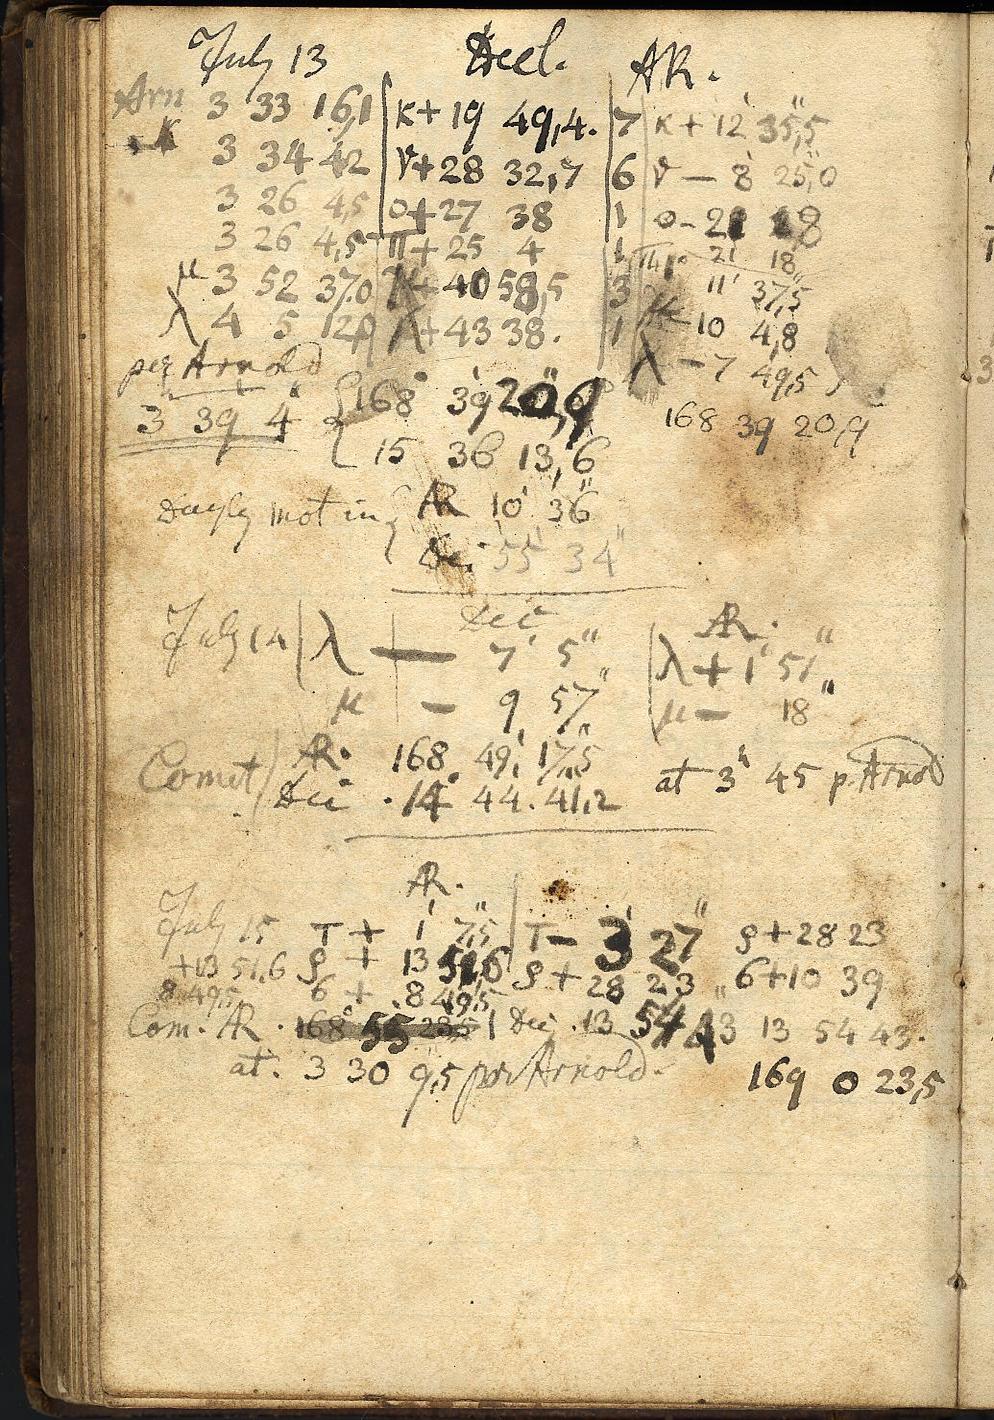 July 13 Decl. AR.
Arn 3 33 16,1 κ+19 49,4. 7 κ+12' 35",5
κ 3 34 42 ν+28 32,7 6 ν — 8' 25",0
3 26 4,5 ο+27 38 1 ο-21 18
3 26 4,5 π+25 4 1 21' 18"
μ 3 52 37.0 μ+40 58,5 3 11' 37",5
λ 4 5 12,0 λ+43 38. 1 μ-10 4,8
per Arnold λ -7 49,5
3 39 4 168° 39' 20",9 168 39 20,9
15 36 13,6
Dayly mot in AR 10' 36"
De. 55' 34"
Dec AR.
July 14 λ — 7' 5" λ + 1' 51"
μ — 9, 57" μ — 18"
Comet AR. 168 49' 17",5 at 3h 45 p. Arnold
Dec . 14° 44. 41,2
AR.
July 15 τ + 1' 7",5 τ — 3' 27" ρ+28 23
+13 51,6 ρ + 13 51,6 ρ + 28 23 6+10 39
8 49,5 6 + .8 49,5
Com. AR . 168° 55 28,5 Dec .13 54 43 13 54 43.
at. 3 30 9,5 per Arnold. 169 0 23,5